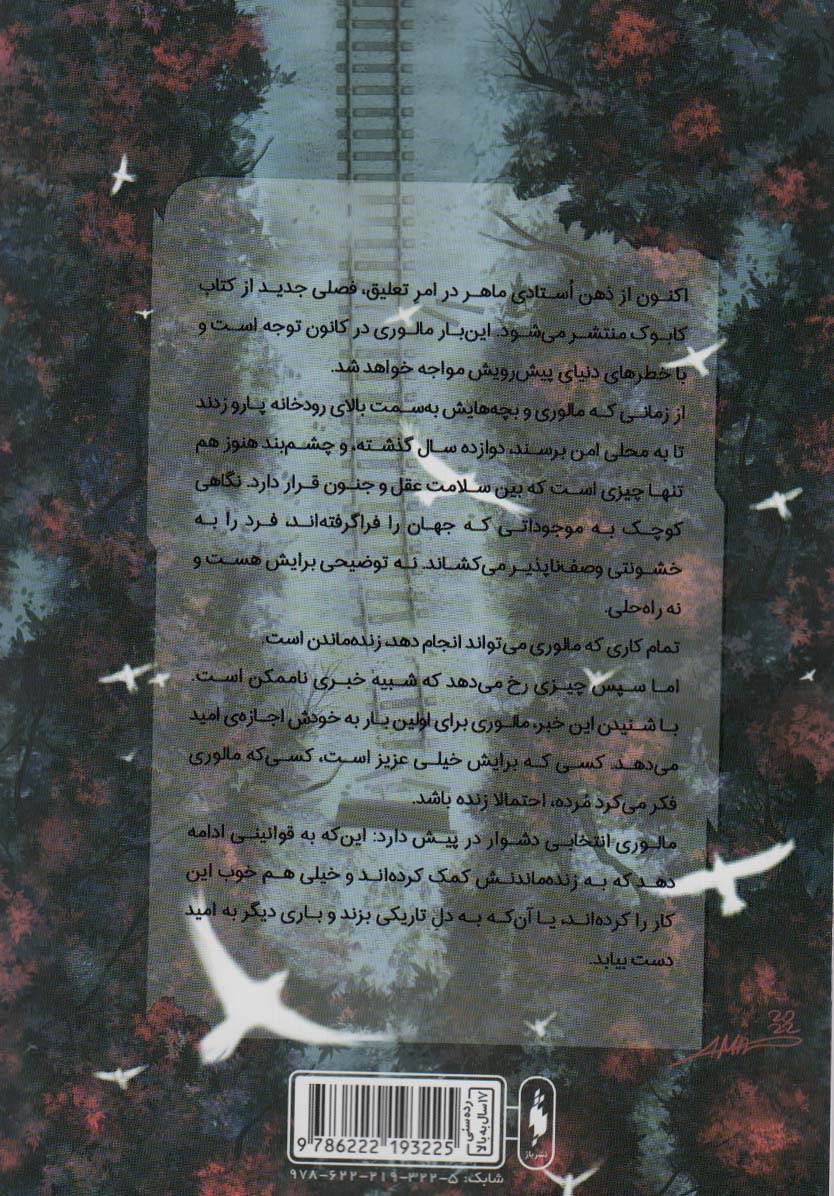 اکنون از ذهن اُستادی ماهر در امرِ تعلیق، فصلی جدید از کتاب
کابوک منتشر می‌شود. این‌بار مالوری در کانون توجه است و
با خطرهای دنیای پیش‌رویش مواجه خواهد شد.
از زمانی که مالوری و بچه‌هایش به‌سمت بالای رودخانه پارو زدند
تا به محلی امن برسند، دوازده سال گذشته، و چشم‌بند هنوز هم
تنها چیزی است که بین سلامت عقل و جنون قرار دارد. نگاهی
کوچک به موجوداتی که جهان را فراگرفته‌اند، فرد را به
خشونتی وصف‌ناپذیر می‌کشاند. نه توضیحی برایش هست و
نه راه‌حلی.
تمام کاری که مالوری می‌تواند انجام دهد، زنده‌ماندن است.
اما سپس چیزی رخ می‌دهد که شبیه خبری ناممکن است.
با شنیدن این خبر، مالوری برای اولین بار به خودش اجازه‌ی امید
می‌دهد. کسی که برایش خیلی عزیز است، کسی‌که مالوری
فکر می‌کرد مُرده، احتمالا زنده باشد.
مالوری انتخابی دشوار در پیش دارد: این‌که به قوانینی ادامه
دهد که به زنده‌ماندنش کمک کرده‌اند و خیلی هم خوب این
کار را کرده‌اند، یا آن‌که به دلِ تاریکی بزند و باری دیگر به امید
دست بیابد.
2022
رده‌سنی
۱۷ سال به بالا
نشر باز
9 786222 193225
شابک: ۹۷۸-۶۲۲-۲۱۹-۳۲۲-۵